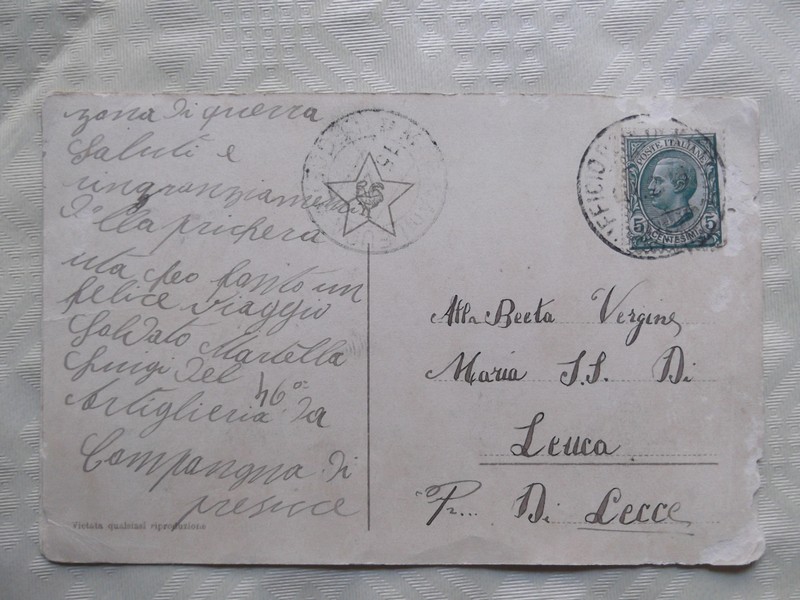 zona di guerra
Saluti e
ringranziamenti
d'lla prighera
che feo fanto un
felice viaggio
Soldato Martella
Luigi del
46º
Artiglieria da
Compangna di
presicce
Vietata qualsiasi riproduzione
POSTE ITALIANE
5 5
CENTESIMI
Alla Beeta Vergine
Maria S.S. Di
Leuca
Pr... Di Lecce